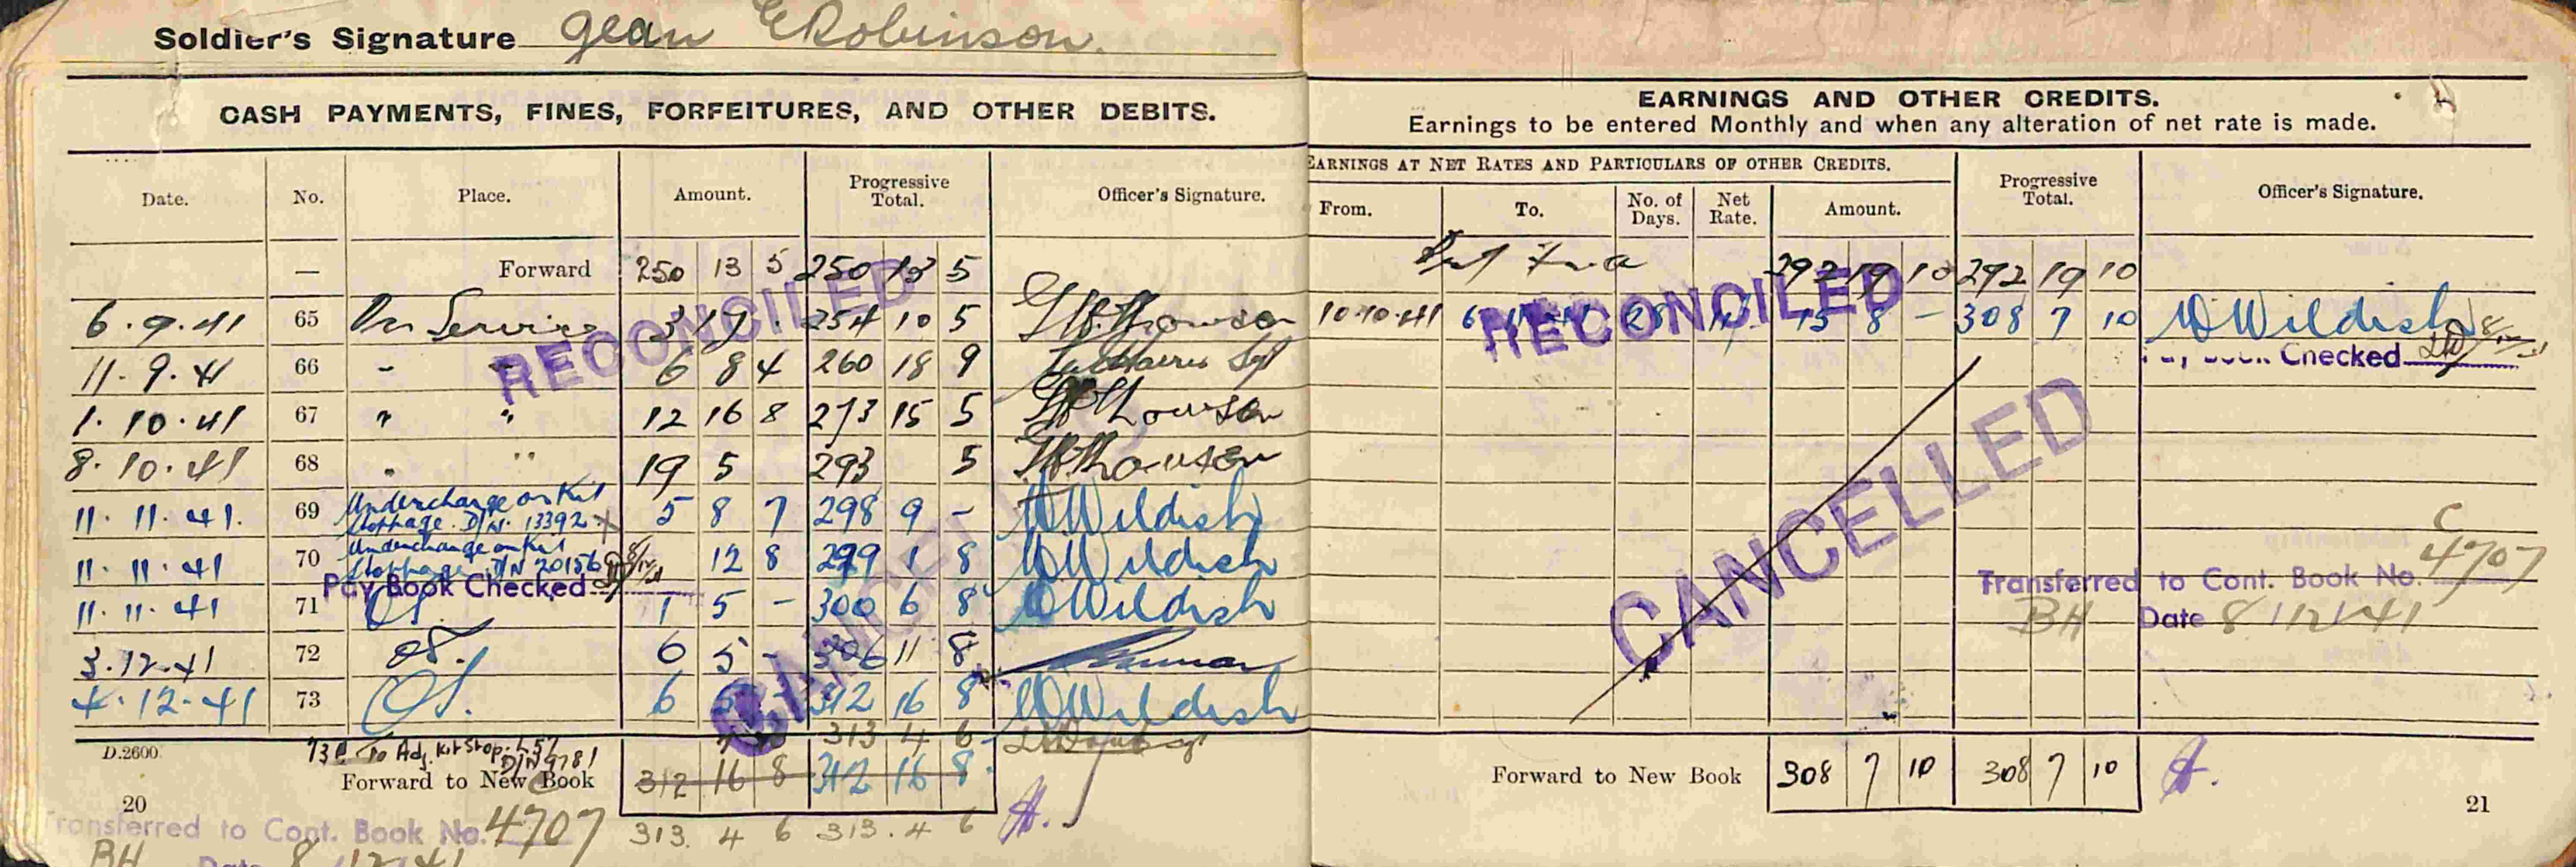 Soldier's Signature Jean E Robinson.
CASH PAYMENTS, FINES, FORFEITURES, AND OTHER DEBITS.
Date. No. Place. Amount. Progressive Total. Officer's Signature.
— Forward 250 13 5 250 13 5
RECONCILED
6.9.41 65 Per Service 3 17 . 254 10 5
11.9.41 66 - - 6 8 4 260 18 9
1.10.41 67 " " 12 16 8 273 15 5
8.10.41 68 " " 19 5 293 5
11.11.41. 69 Undercharge on Kit Stoppage. D/N. 13392 X 5 8 7 298 9 - W Wildish
11.11.41 70 Undercharge on Kit Stoppage D/N 20156 12 8 299 1 8 W Wildish
Pay Book Checked
11.11.41 71 1 5 - 300 6 8 W Wildish
3.12.41 72 6 5 - 306 11 8
4.12.41 73 6 5 - 312 16 8 W Wildish
CANCELLED
To Adj. Kit Stop. D/N 9781 313 4 6
D.2600.
Forward to New Book 312 16 8 312 16 8
20
Transferred to Cont. Book No. 4707 313. 4 6 313. 4 6
BH Date 8/12/41
EARNINGS AND OTHER CREDITS.
Earnings to be entered Monthly and when any alteration of net rate is made.
EARNINGS AT NET RATES AND PARTICULARS OF OTHER CREDITS.
From. To. No. of Days. Net Rate. Amount. Progressive Total. Officer's Signature.
292 19 10 292 19 10
RECONCILED
10.10.41 28 11/- 15 8 - 308 7 10 W Wildish
Pay Book Checked
CANCELLED
C
4707
Transferred to Cont. Book No.
BH Date 8/12/41
Forward to New Book 308 7 10 308 7 10
21